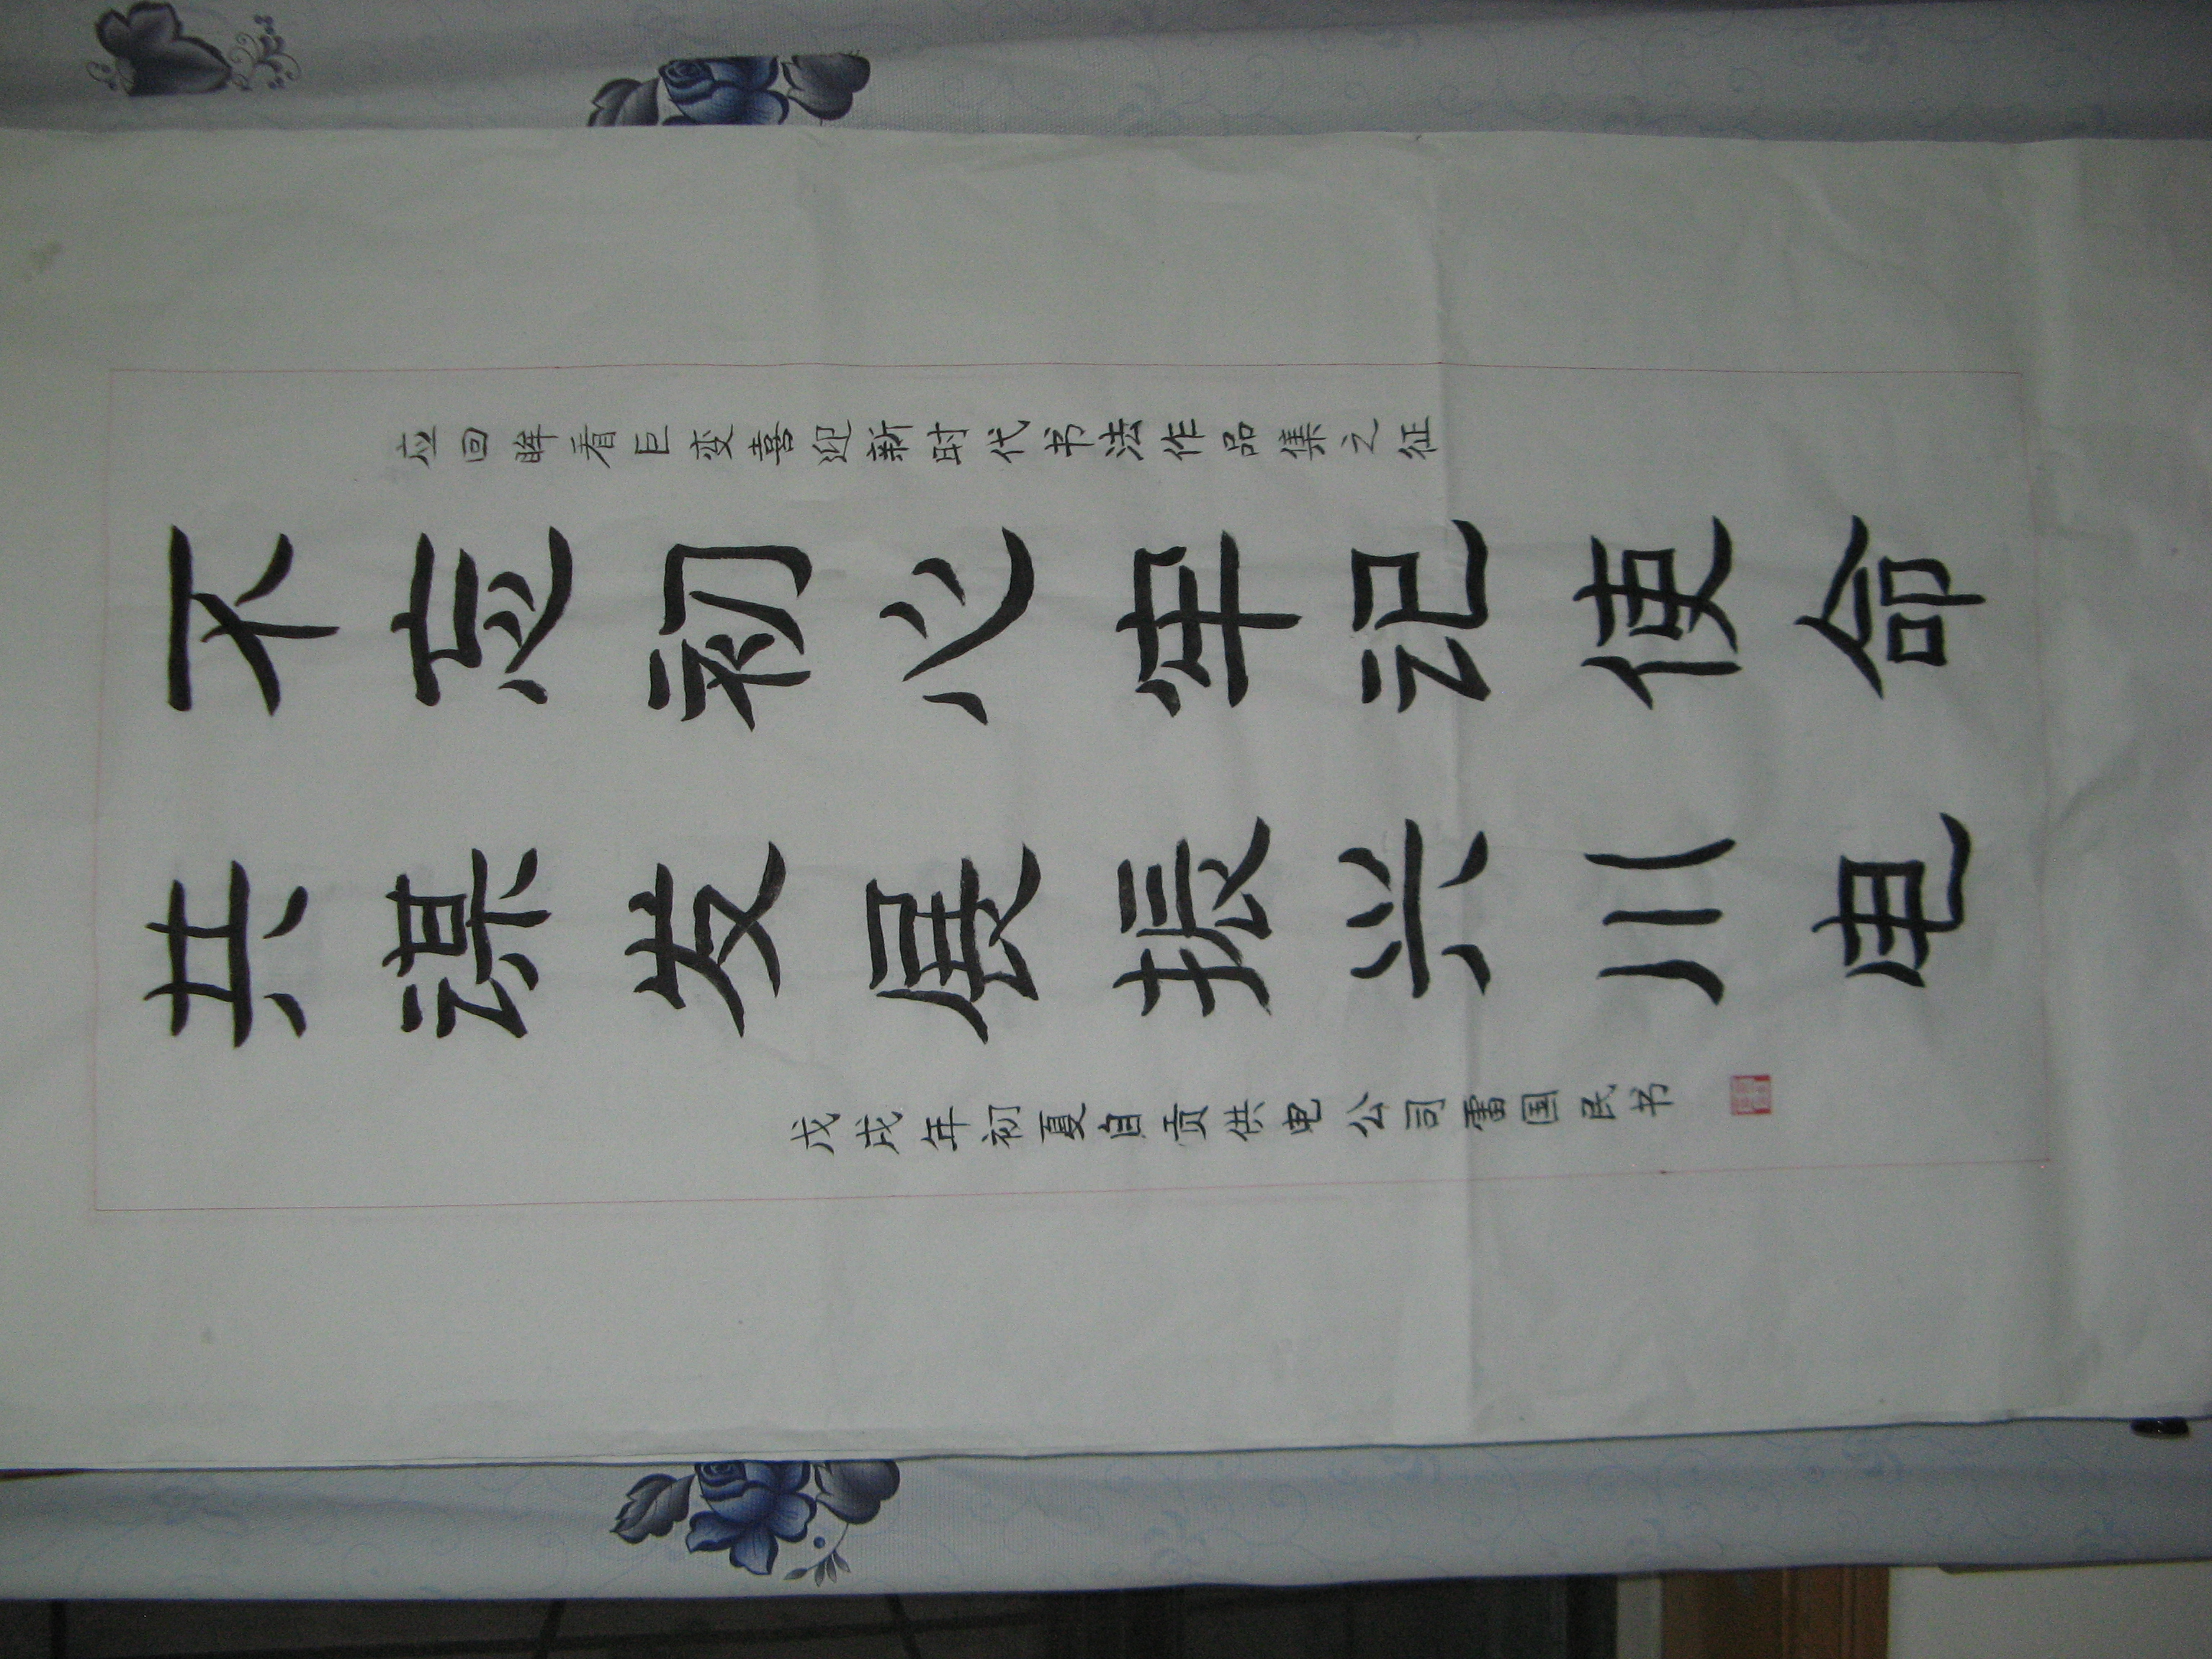 应回眸看巨变喜迎新时代书法作品集之征
不忘初心牢记使命
共谋发展振兴川电
戊戌年初夏自贡供电公司雷国民书